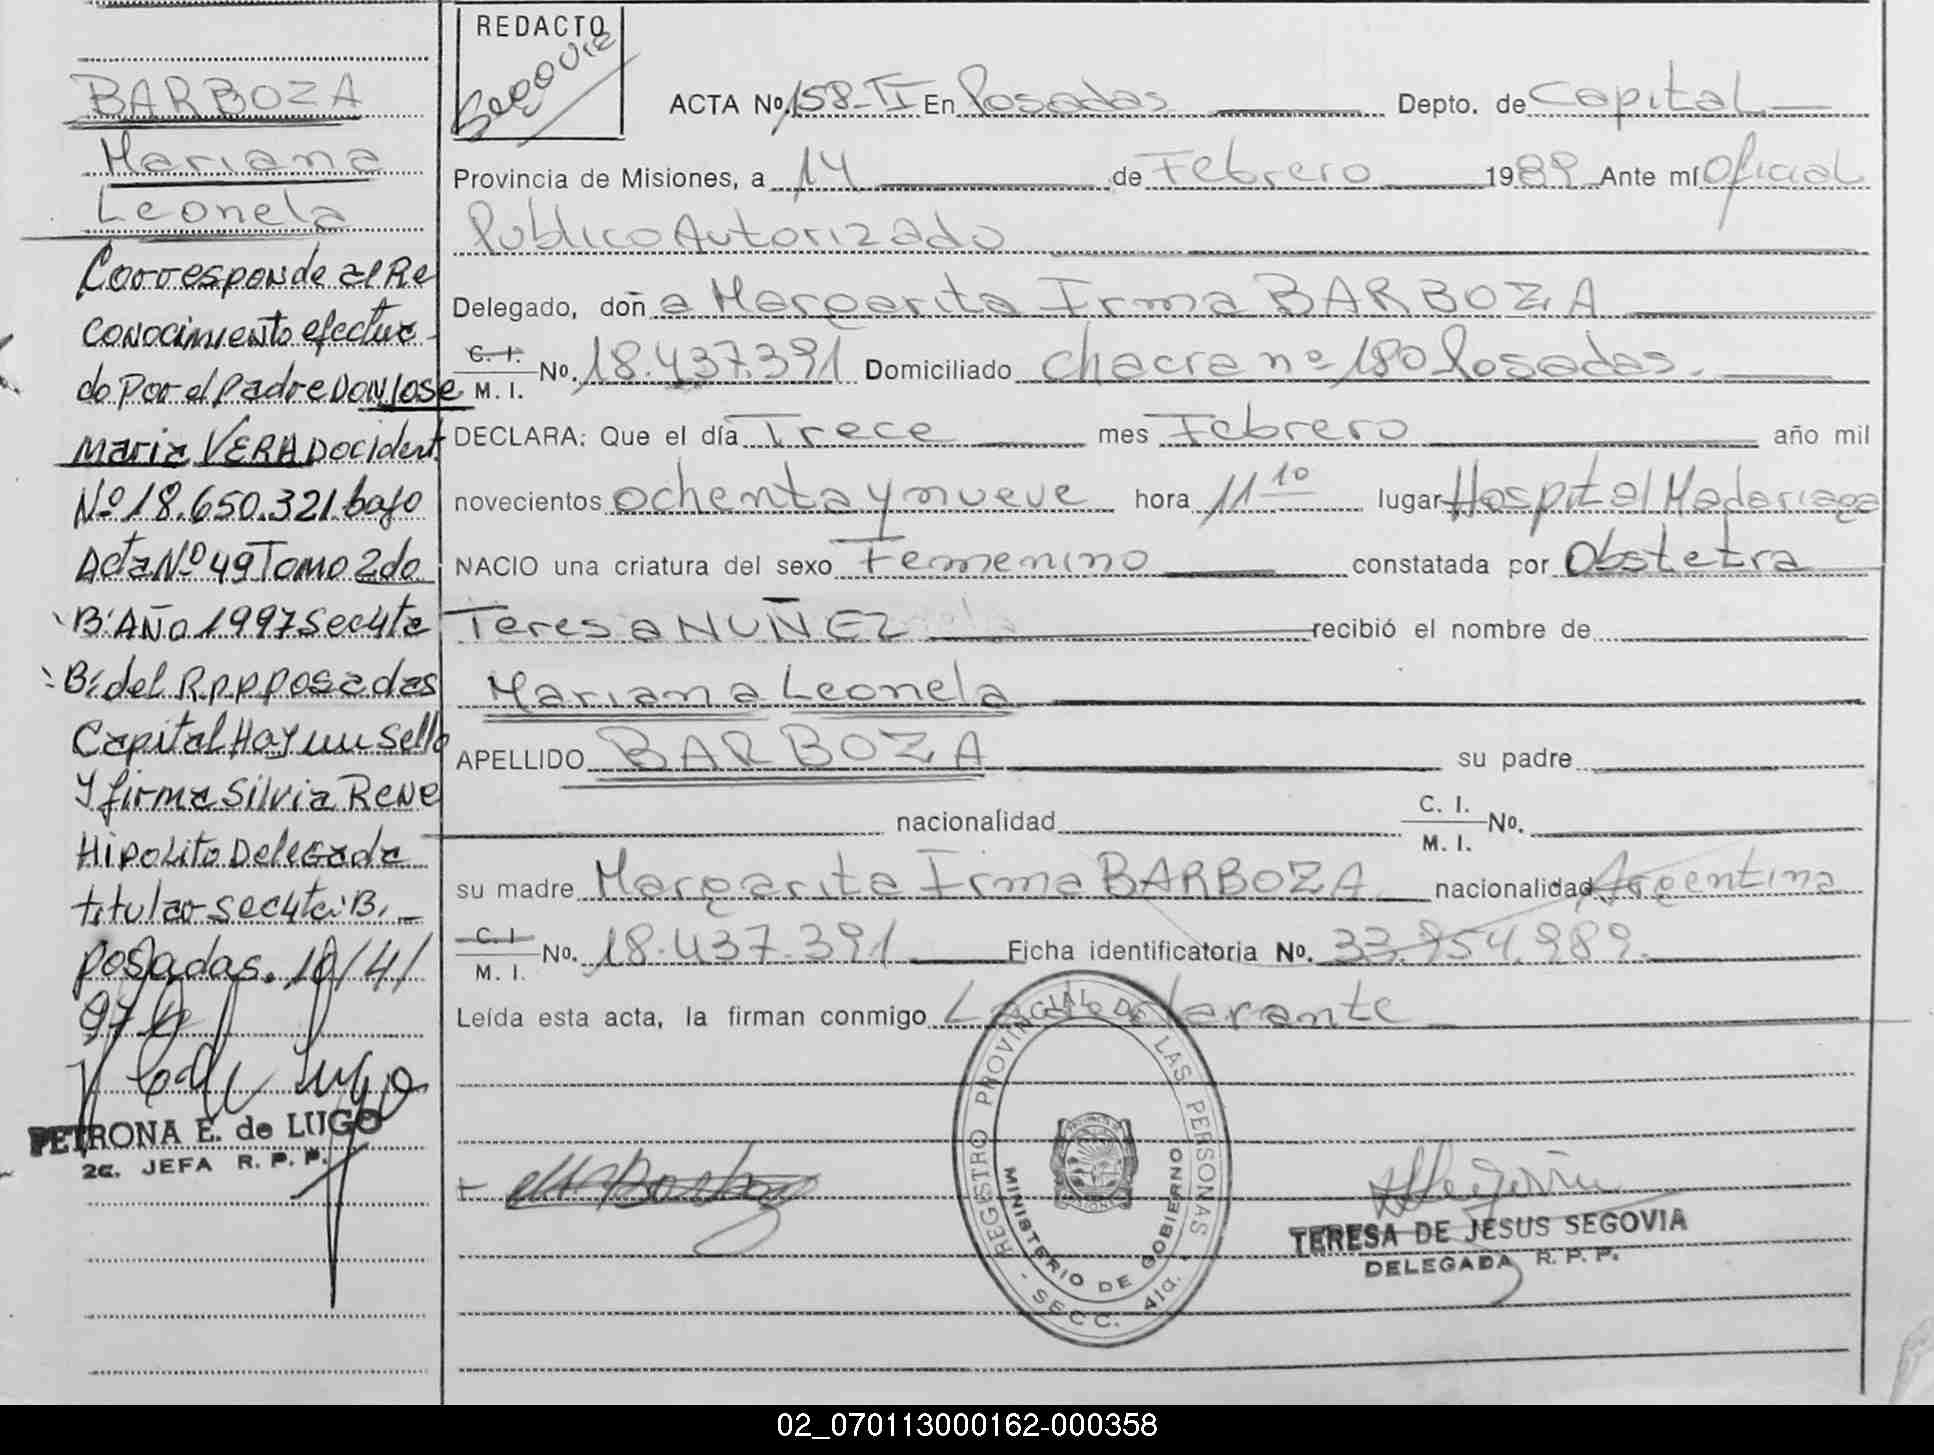 BARBOZA
Mariana
Leonela
Corresponde al Re
conocimiento efectua
do por el padre DON Jose
Maria VERA Docident
Nº 18.650.321 bajo
Acta Nº 49 Tomo 2do
"B" Año 1997 Sec 4ta
"B" del R.p.p posadas
Capital Hay un sello
Y firma Silvia Rene
Hipolito Delegada
titular sec 4ta "B".-
posadas. 10/4/
97
PETRONA E. de LUGO
2a. JEFA R. P. P.
REDACTO
Segovia
ACTA Nº 158-II En Posadas Depto. de Capital
Provincia de Misiones, a 14 de Febrero 1989 Ante mí Oficial
Publico Autorizado
Delegado, doña Margarita Irma BARBOZA
C. I. M. I. No. 18.437.391 Domiciliado chacra nº 180 Posadas.
DECLARA: Que el día Trece mes Febrero año mil
novecientos ochenta y nueve hora 11 10 lugar Hospital Madariaga
NACIO una criatura del sexo Femenino constatada por Obstetra
Teresa NUÑEZ recibió el nombre de
Mariana Leonela
APELLIDO BARBOZA su padre
nacionalidad C. I. M. I. No.
su madre Margarita Irma BARBOZA nacionalidad Argentina
C. I. M. I. No. 18.437.391 Ficha identificatoria No. 33.954.989.
Leída esta acta, la firman conmigo La declarante
REGISTRO PROVINCIAL DE LAS PERSONAS
MINISTERIO DE GOBIERNO
- SECC. 4ta. -
TERESA DE JESUS SEGOVIA
DELEGADA R. P. P.
02_070113000162-000358